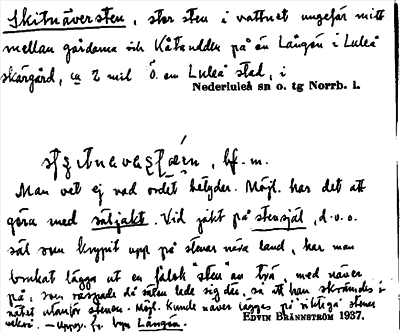 Skitnäversten, stor sten i vattnet ungefär mitt
mellan gårdarna och Kåtaudden på ön Långön i Luleå
skärgård, ca 2 mil Ö. om Luleå stad, i
Nederluleå sn o. tg Norrb. l.
bf. m.
Man vet ej vad ordet betyder. Möjl. har det att
göra med säljakt. Vid jakt på stensjäl, d.v.s.
säl som krypit upp på stenar nära land, har man
brukat lägga ut en falsk "sten" av trä, med näver
på, som rasslade då sälen lede sig der, så att han skrämdes i
nätet utanför stenen. Möjl. kunde näver läggas på riktiga stenar
också. – Uppg. fr. byn Långön.
EDVIN BRÄNNSTRÖM 1937.